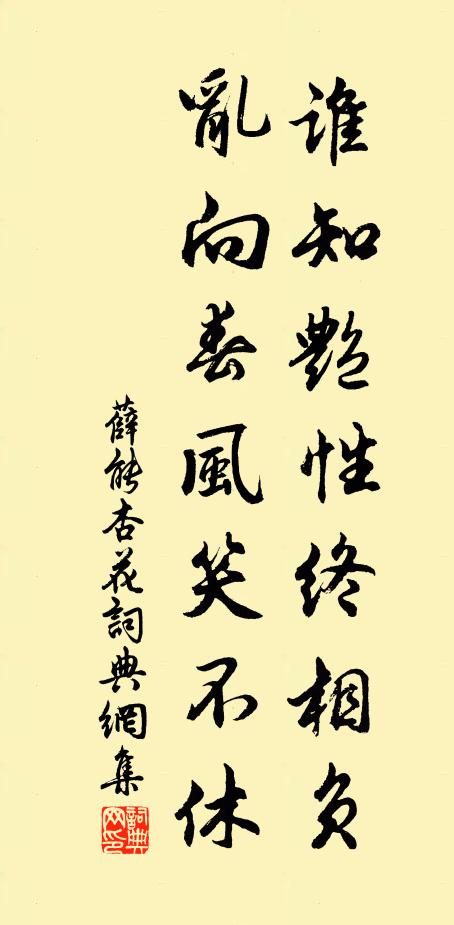 誰知艷性終相負
亂向春風笑不休
薛能杏花詞典網集
詞典網印